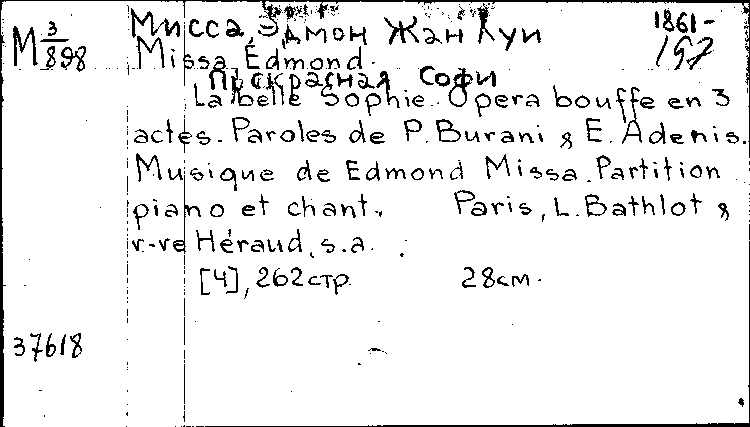 М 3/898 Мисса, Эдмон Жан Луи 1861-
Missa, Édmond.
Прекрасная Софи
La belle Sophie. Opera bouffe en 3
actes. Paroles de P. Burani & E. Adenis.
Musique de Edmond Missa. Partition
piano et chant. Paris, L. Bathlot &
v-ve Héraud, s.a.
[4], 262 стр. 28 см.
37618